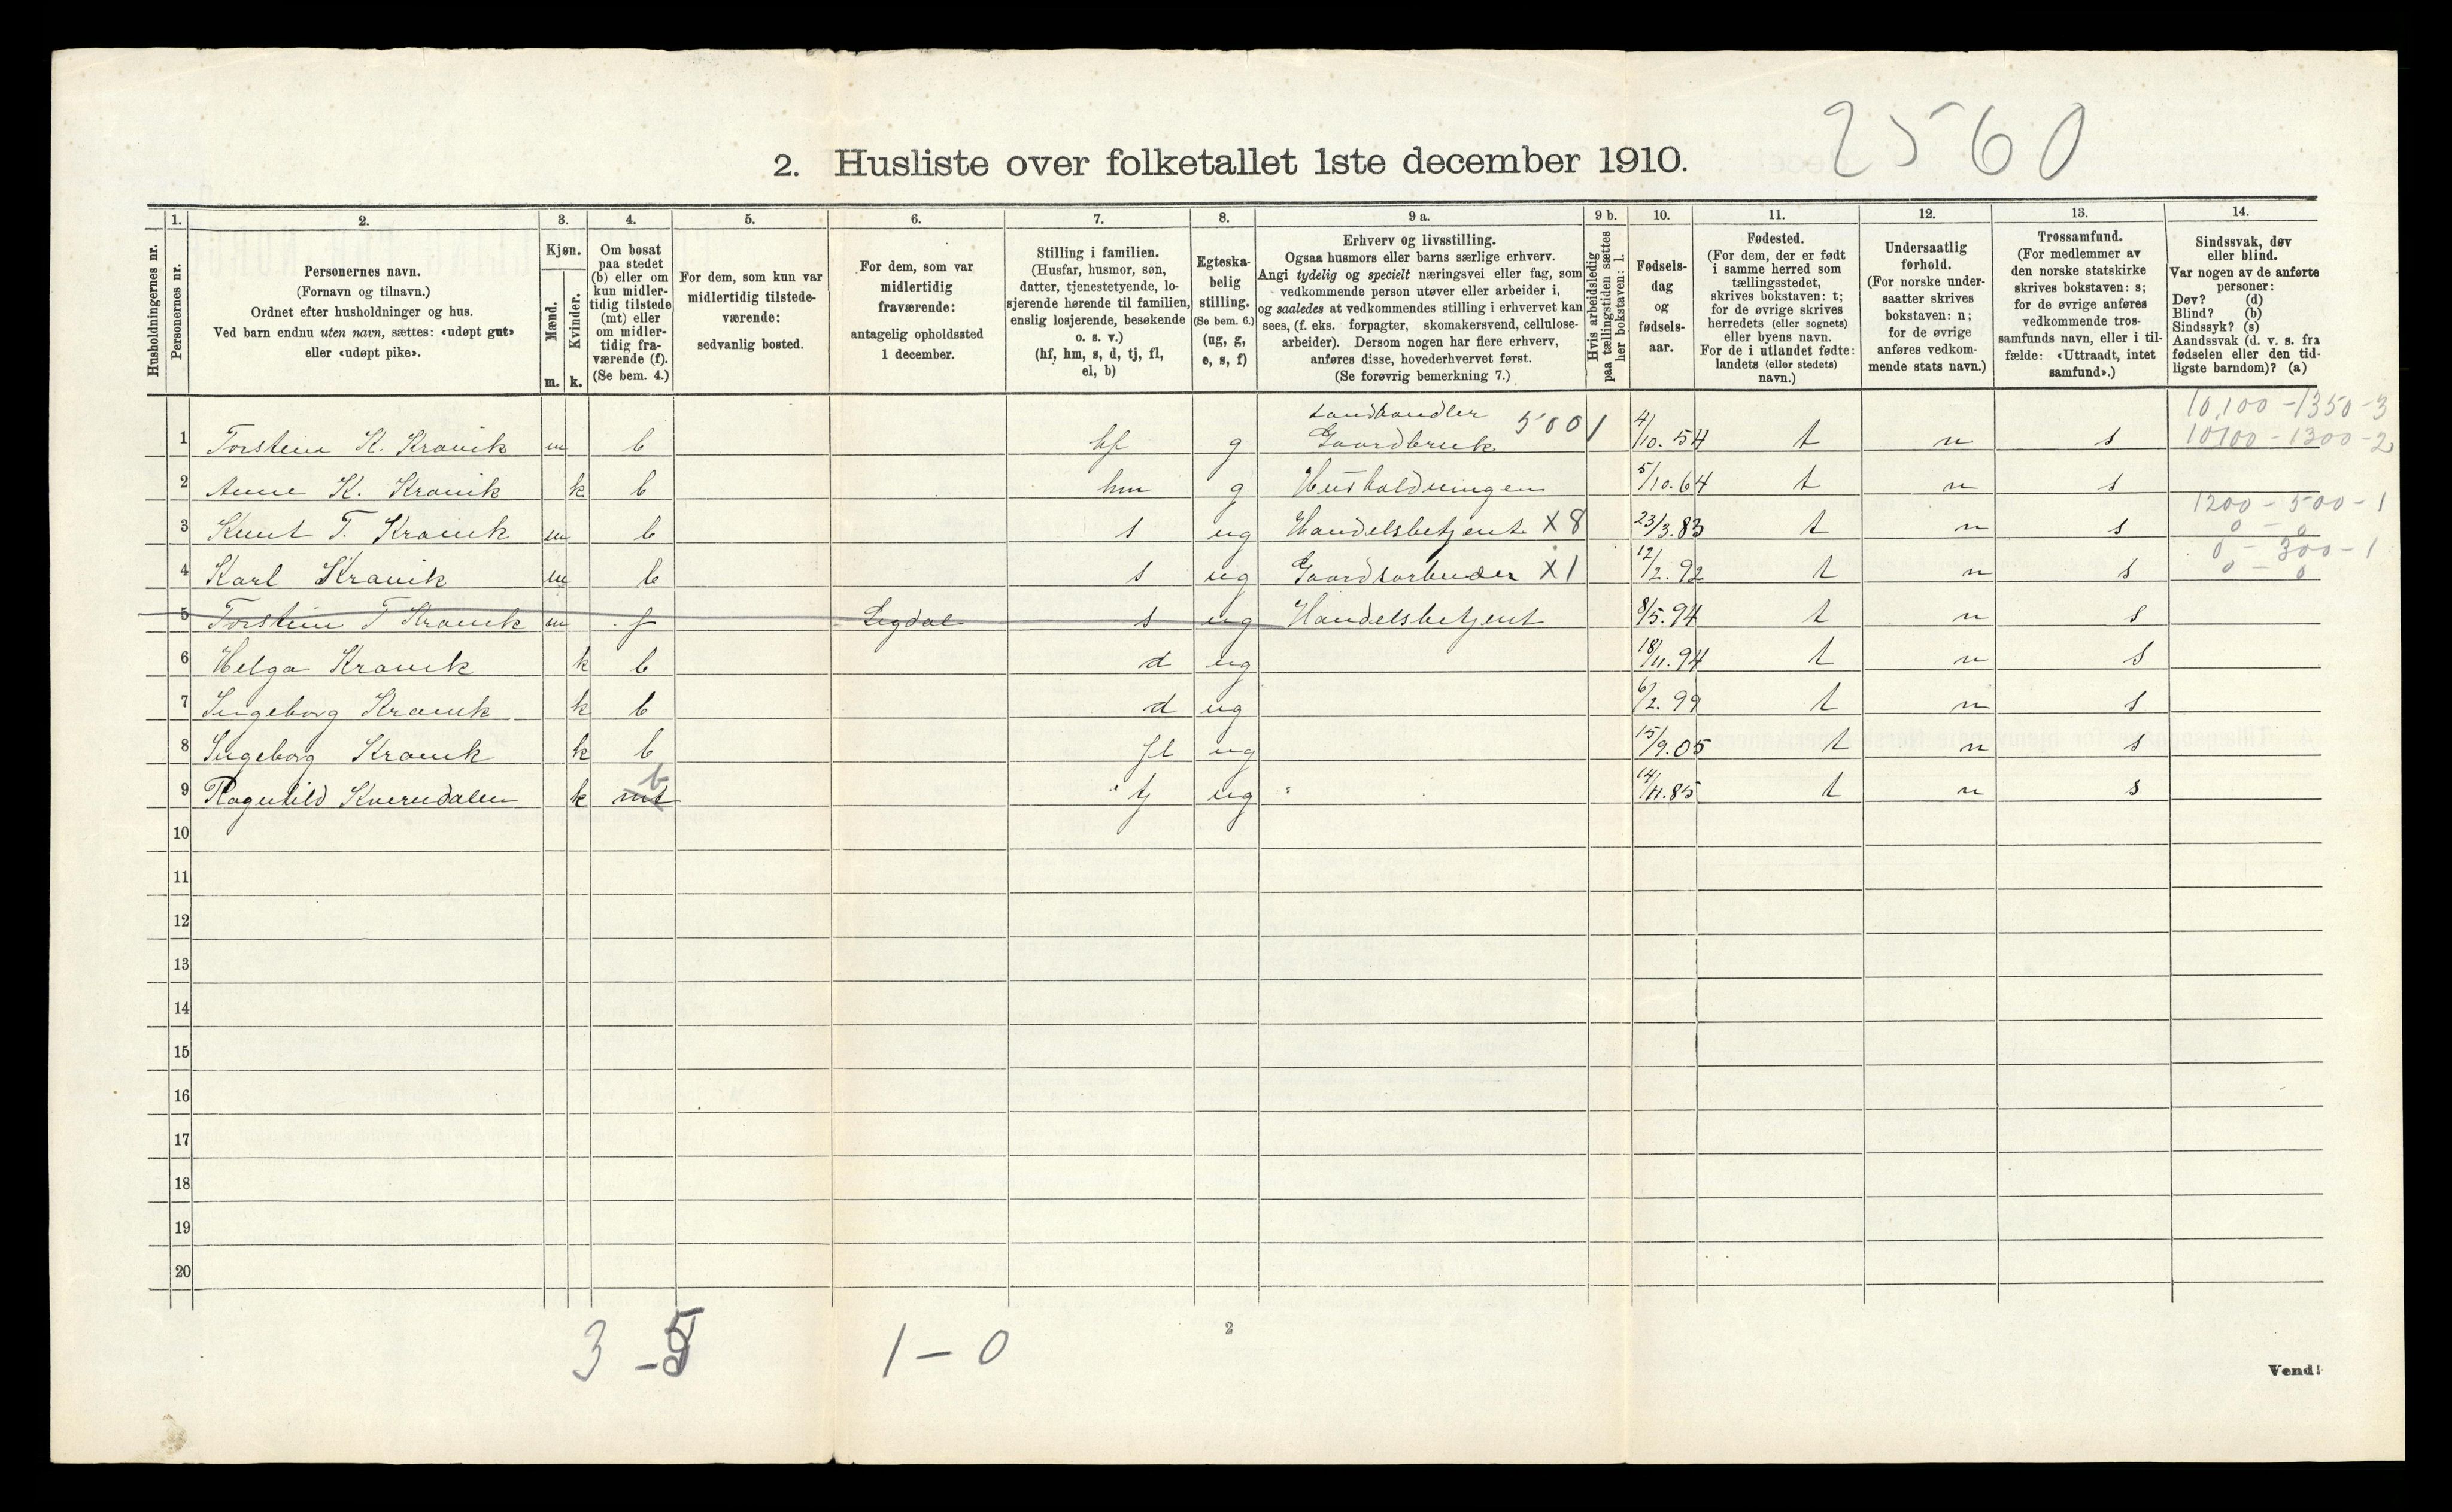 2560
2. Husliste over folketallet 1ste december 1910.
Husholdningernes nr.
1.
Personernes nr.
2.
Personernes navn.
(Fornavn og tilnavn.)
Ordnet efter husholdninger og hus.
Ved barn endnu uten navn, sættes: «udøpt gut»
eller «udøpt pike».
3.
Kjøn.
Mænd.
m.
Kvinder.
k.
4.
Om bosat
paa stedet
(b) eller om
kun midler-
tidig tilstede
(mt) eller
om midler-
tidig fra-
værende (f).
(Se bem. 4.)
5.
For dem, som kun var
midlertidig tilstede-
værende:
sedvanlig bosted.
6.
For dem, som var
midlertidig
fraværende:
antagelig opholdssted
1 december.
7.
Stilling i familien.
(Husfar, husmor, søn,
datter, tjenestetyende, lo-
sjerende hørende til familien,
enslig losjerende, besøkende
o. s. v.)
(hf, hm, s, d, tj, fl,
el, b)
8.
Egteska-
belig
stilling.
(Se bem. 6.)
(ug, g,
e, s, f)
9 a.
Erhverv og livsstilling.
Ogsaa husmors eller barns særlige erhverv.
Angi tydelig og specielt næringsvei eller fag, som
vedkommende person utøver eller arbeider i,
og saaledes at vedkommendes stilling i erhvervet kan
sees, (f. eks. forpagter, skomakersvend, cellulose-
arbeider). Dersom nogen har flere erhverv,
anføres disse, hovederhvervet først.
(Se forøvrig bemerkning 7.)
9 b.
Hvis arbeidsledig
paa tællingstiden sættes
her bokstaven: l.
10.
Fødsels-
dag
og
fødsels-
aar.
11.
Fødested.
(For dem, der er født
i samme herred som
tællingsstedet,
skrives bokstaven: t;
for de øvrige skrives
herredets (eller sognets)
eller byens navn.
For de i utlandet fødte:
landets (eller stedets)
navn.)
12.
Undersaatlig
forhold.
(For norske under-
saatter skrives
bokstaven: n;
for de øvrige
anføres vedkom-
mende stats navn.)
13.
Trossamfund.
(For medlemmer av
den norske statskirke
skrives bokstaven: s;
for de øvrige anføres
vedkommende tros-
samfunds navn, eller i til-
fælde: «Uttraadt, intet
samfund».)
14.
Sindssvak, døv
eller blind.
Var nogen av de anførte
personer:
Døv? (d)
Blind? (b)
Sindssyk? (s)
Aandssvak (d. v. s. fra
fødselen eller den tid-
ligste barndom)? (a)
Landhandler 10,100 - 1350 - 3
1 Torstein K. Kravik m b hf g Gaardbruk 5001 4/10. 54 t n s 10100 - 1300 - 2
2 Anne K. Kravik k b hm g Husholdningen 5/10. 64 t n s
1200 - 500 - 1
3 Knut T. Kravik m b s ug Handelsbetjent X 8 23/3. 83 t n s 0 - 0
0 - 300 - 1
4 Karl Kravik m b s ug Gaardsarbeider X1 12/2. 92 t n s 0 - 0
5 Torstein T Kravik m f Sigdal s ug Handelsbetjent 8/5. 94 t n s
6 Helga Kravik k b d ug 18/11. 94 t n s
7 Ingeborg Kravik k b d ug 6/2. 99 t n s
8 Ingeborg Kravik k b fl ug 15/9. 05 t n s
b
9 Ragnhild Kverndalen k mt tj ug " 14/11. 85 t n s
10
11
12
13
14
15
16
17
18
19
20
3 - 5 1 - 0
2
Vend!